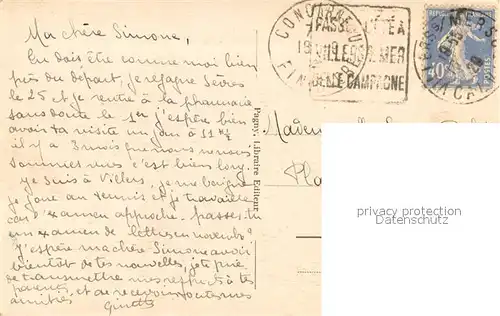 Ma chère Simone,
Tu dois être comme moi bien
près du départ, je regagne Sèvres
le 25 et je rentre à la pharmacie
sans doute le 1er j'espère bien
avoir ta visite un jour à 11h ½
il y a 3 mois que nous nous
sommes vues c'est bien long.
Je suis à Villers, je me baigne
je joue au tennis et je travaille
car l'examen approche. passes-tu
un examen de lettres en novembre?
J'espère ma chère Simone avoir
bientôt de tes nouvelles, je te prie
de transmettre mes respects à tes
parents et de recevoir toutes mes
amitiés
Pagny, Libraire Editeur
CONCOURS
PASSE L'ETÉ À
VILLERS S MER
CAMPAGNE
VILLERS S/ MER
40
privacy protection
property protection